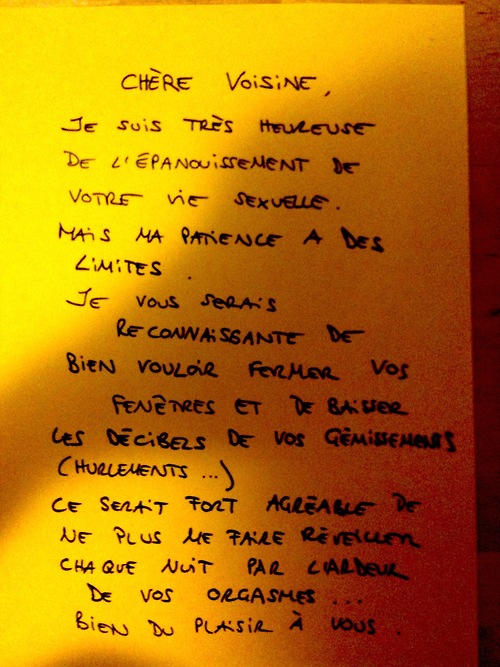 CHÈRE VOISINE,
JE SUIS TRÈS HEUREUSE
DE L'ÉPANOUISSEMENT DE
VOTRE VIE SEXUELLE.
MAIS MA PATIENCE A DES
LIMITES.
JE VOUS SERAIS
RECONNAISSANTE DE
BIEN VOULOIR FERMER VOS
FENÊTRES ET DE BAISSER
LES DÉCIBELS DE VOS GÉMISSEMENTS
(HURLEMENTS...)
CE SERAIT FORT AGRÉABLE DE
NE PLUS ME FAIRE RÉVEILLER
CHAQUE NUIT PAR L'ARDEUR
DE VOS ORGASMES...
BIEN DU PLAISIR À VOUS.